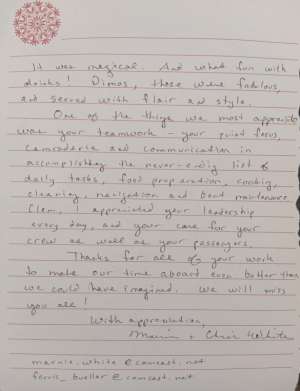 It was magical. And what fun with
drinks! Dimos, those were fabulous,
and served with flair and style.
One of the things we most appreciate
was your teamwork - your quiet focus,
camraderie and communication in
accomplishing the never-ending list of
daily tasks, food preparation, cooking,
cleaning, navigation and boat maintenance.
appreciated your leadership
every day, and your care for your
crew as well as your passengers.
Thanks for all of your work
to make our time aboard even better than
we could have imagined. We will miss
you all!
With appreciation,
+ Chris White
marnie.white@comcast.net
ferris_bueller@comcast.net